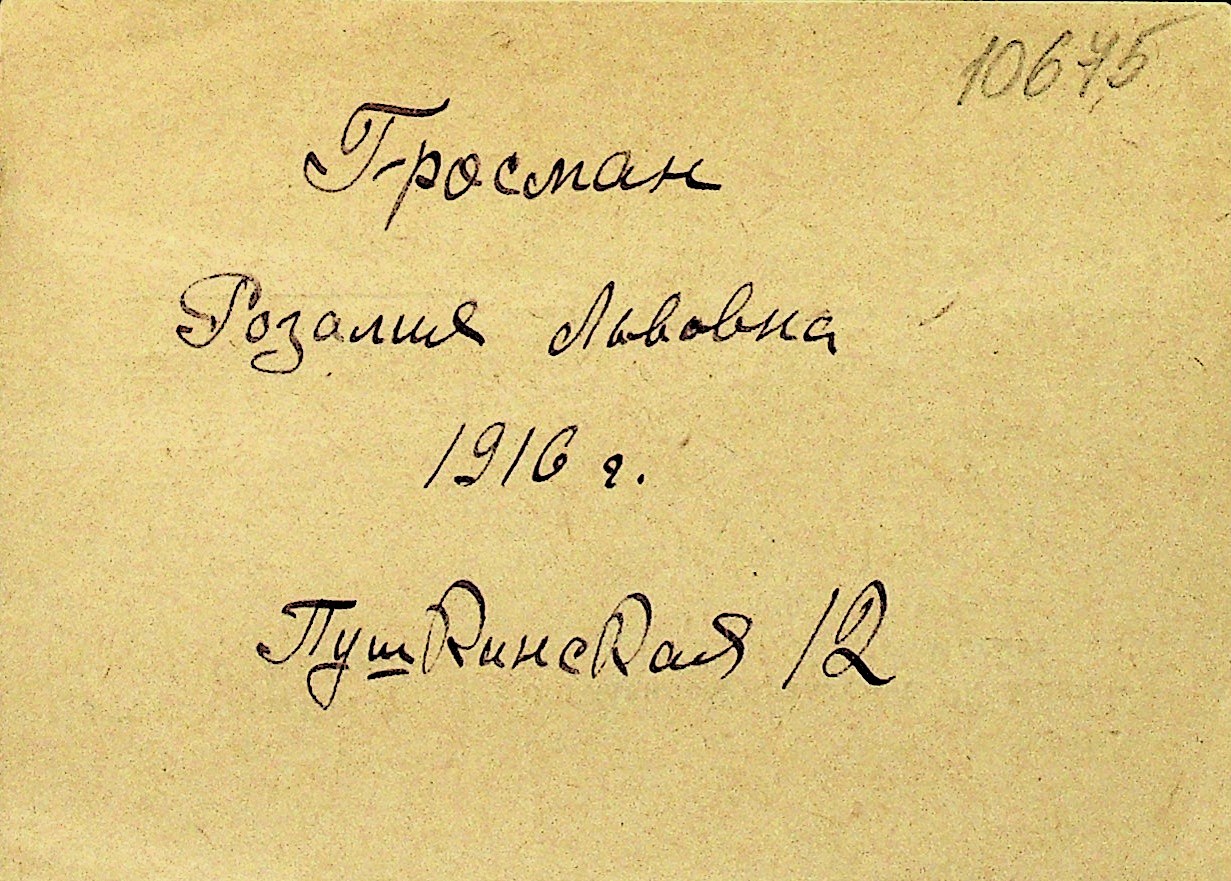 10675
Гросман
Розалия Львовна
1916 г.
Пушкинская 12